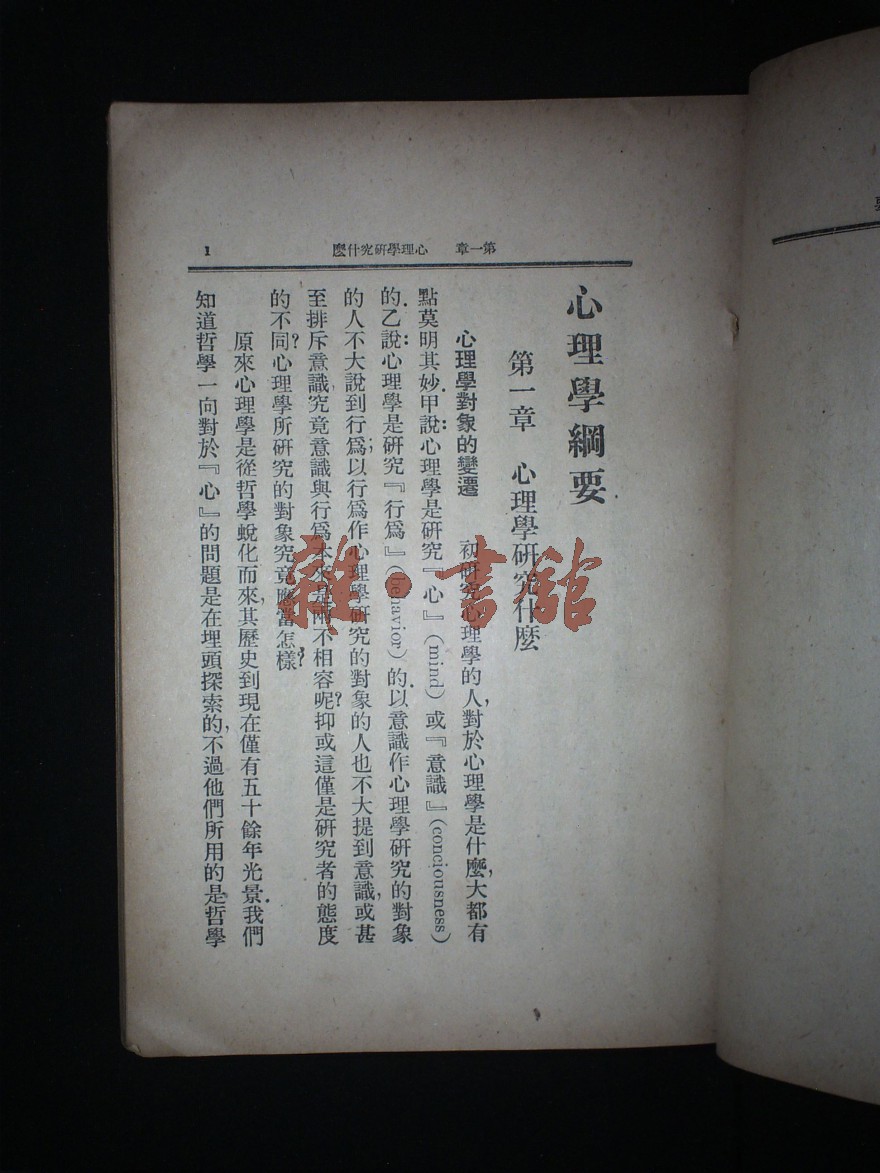 第一章　心理學研究什麼
1
心理學綱要
第一章　心理學研究什麼
心理學對象的變遷　初研究心理學的人，對於心理學是什麼，大都有
點莫明其妙．甲說：心理學是研究『心』(mind)或『意識』(conciousness)
的．乙說：心理學是研究『行為』(behavior)的．以意識作心理學研究的對象
的人不大說到行為；以行為作心理學研究的對象的人也不大提到意識，或甚
至排斥意識．究竟意識與行為本來是兩不相容呢？抑或這僅是研究者的態度
的不同？心理學所研究的對象究竟應當怎樣？
原來心理學是從哲學蛻化而來，其歷史到現在僅有五十餘年光景．我們
知道哲學一向對於『心』的問題是在埋頭探索的，不過他們所用的是哲學
雜·書館